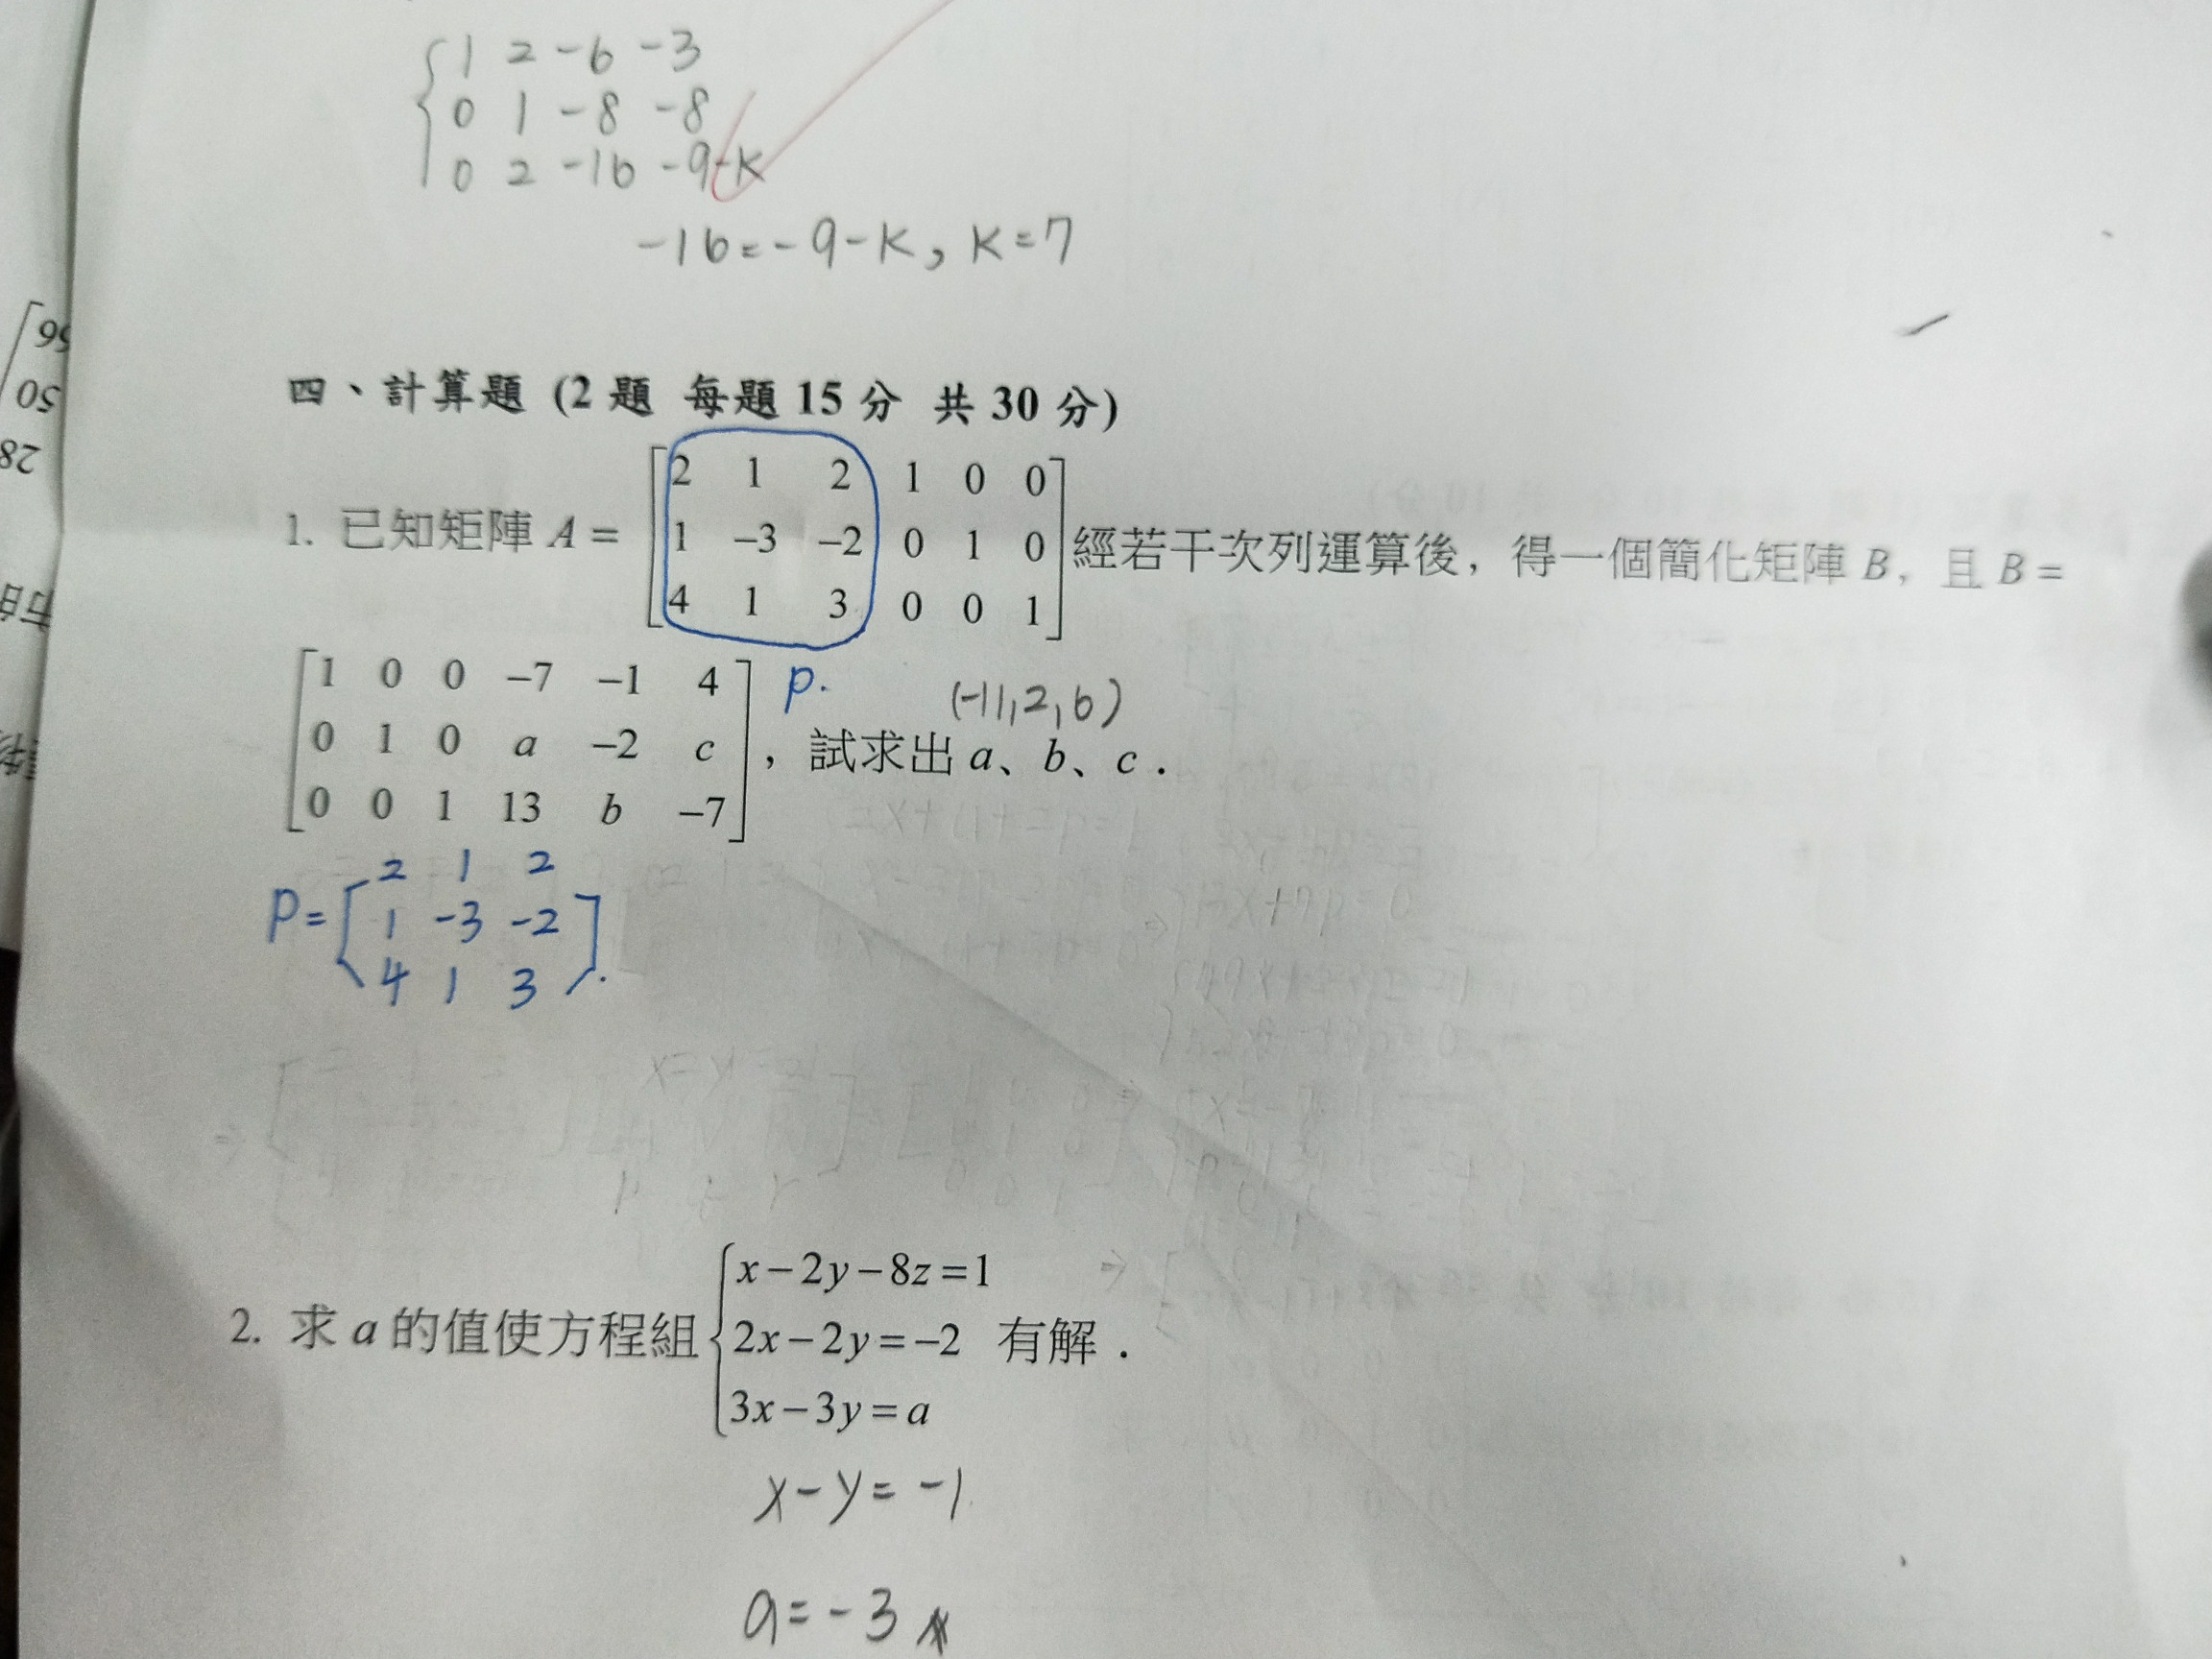 1 2 -6 -3
0 1 -8 -8
0 2 -16 -9-K
-16=-9-K, K=7
四、計算題 (2 題 每題 15 分 共 30 分)
1. 已知矩陣 A = [2 1 2 1 0 0
1 -3 -2 0 1 0
4 1 3 0 0 1] 經若干次列運算後，得一個簡化矩陣 B，且 B =
[1 0 0 -7 -1 4
0 1 0 a -2 c
0 0 1 13 b -7]
P.
(-11,2,6)
，試求出 a、b、c．
P=[2 1 2
1 -3 -2
4 1 3].
2. 求 a 的值使方程組 {x-2y-8z=1
2x-2y=-2
3x-3y=a 有解．
x-y=-1
a=-3
56
50
28